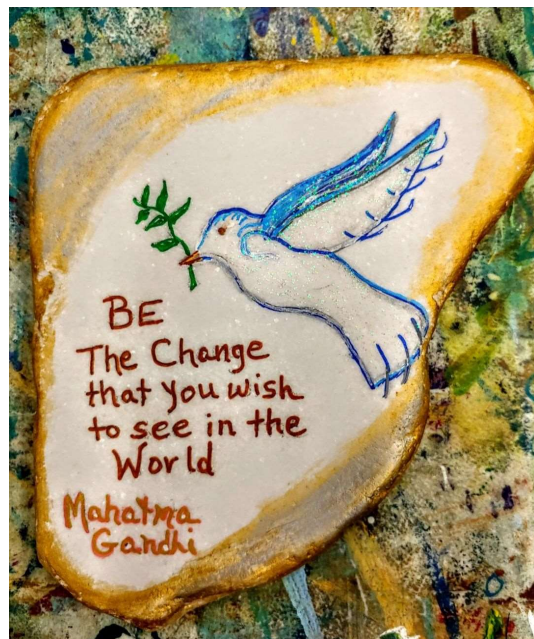 BE
The Change
that you wish
to see in the
World
Mahatma
Gandhi